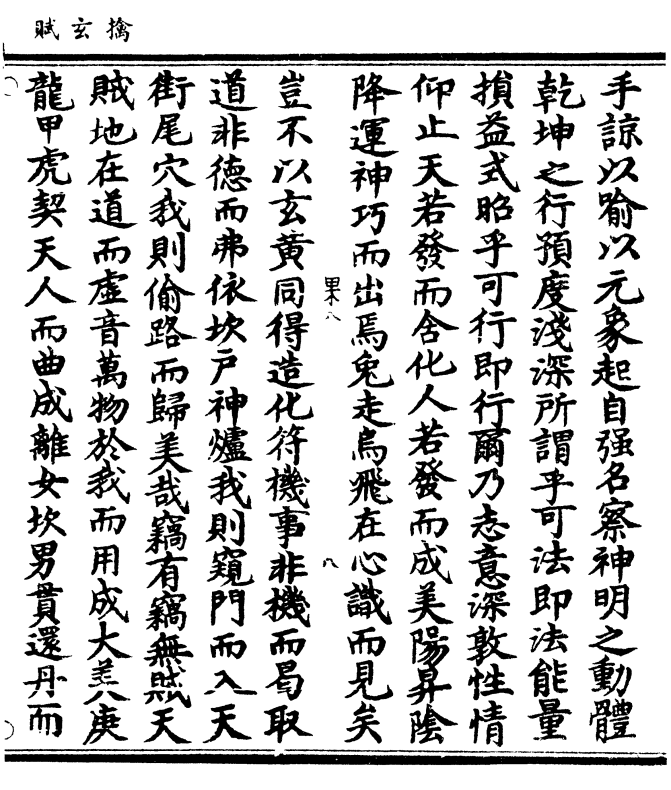 擒玄賦
手諒以喻以元象起自强名察神明之動體
乾坤之行預度淺深所謂乎可法即法能量
損益式昭乎可行即行爾乃志意深敦性情
仰止天若發而含化人若發而成美陽昇陰
降運神巧而出焉兔走烏飛在心識而見矣
豈不以玄黃同得造化符機事非機而曷取
道非德而弗依坎戶神爐我則窺門而入天
街尾穴我則偷路而歸美哉竊有竊無賊天
賊地在道而虛音萬物於我而用成大美庚
龍甲虎契天人而曲成離女坎男貫還丹而